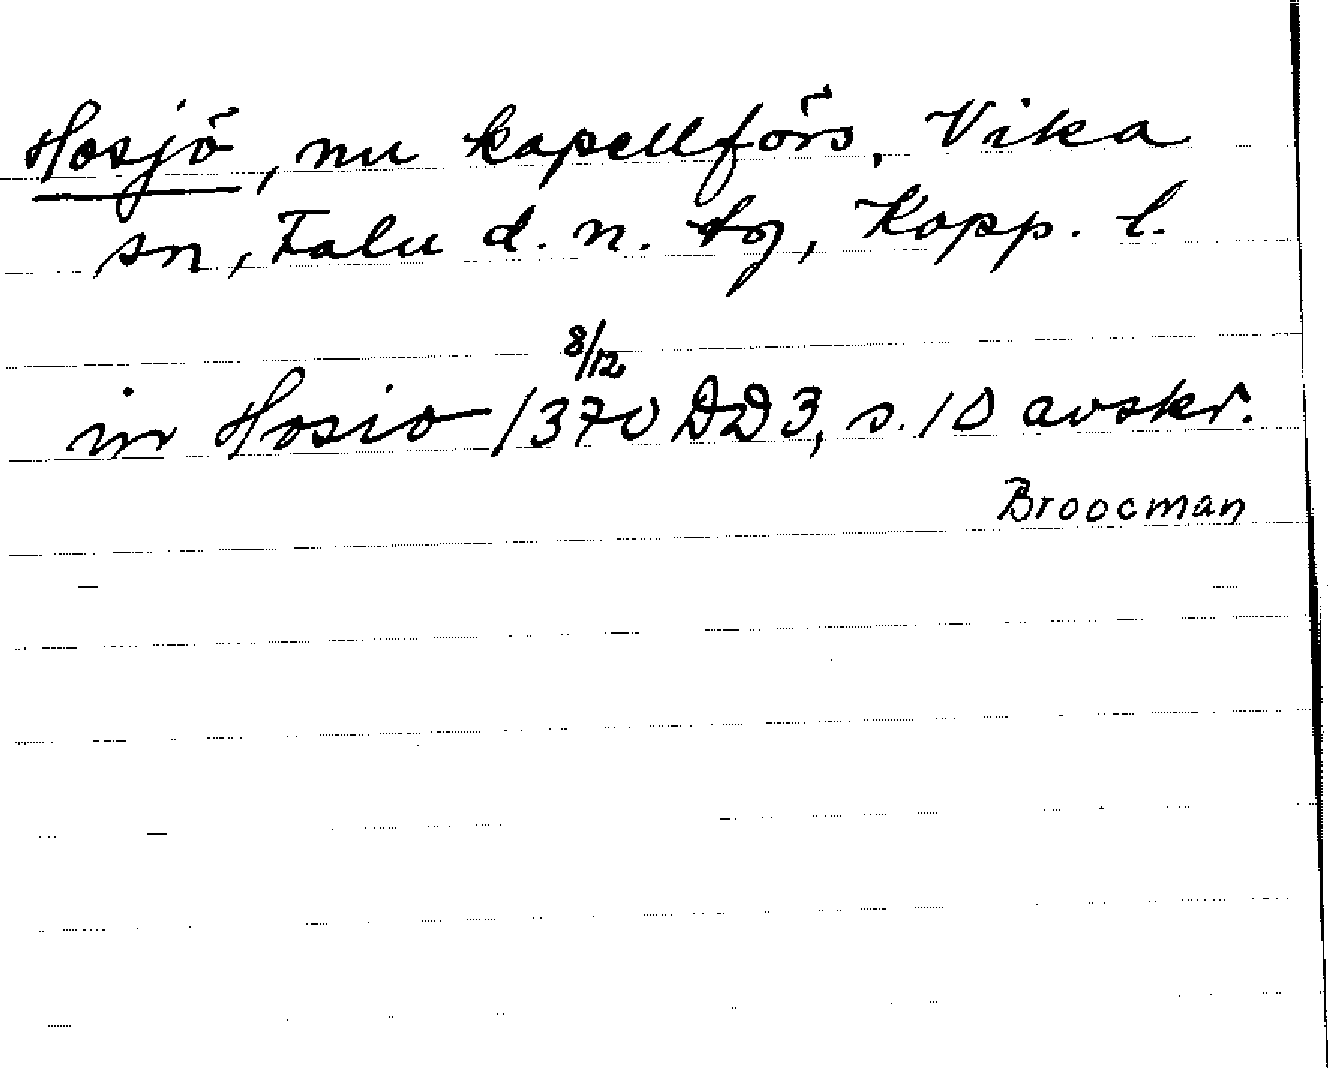 Hosjö, nu kapellförs. Vika
sn, Falu d. n. tg, Kopp. l.
in Hosio 8/12 1370 DD3, s. 10 avskr.
Broocman